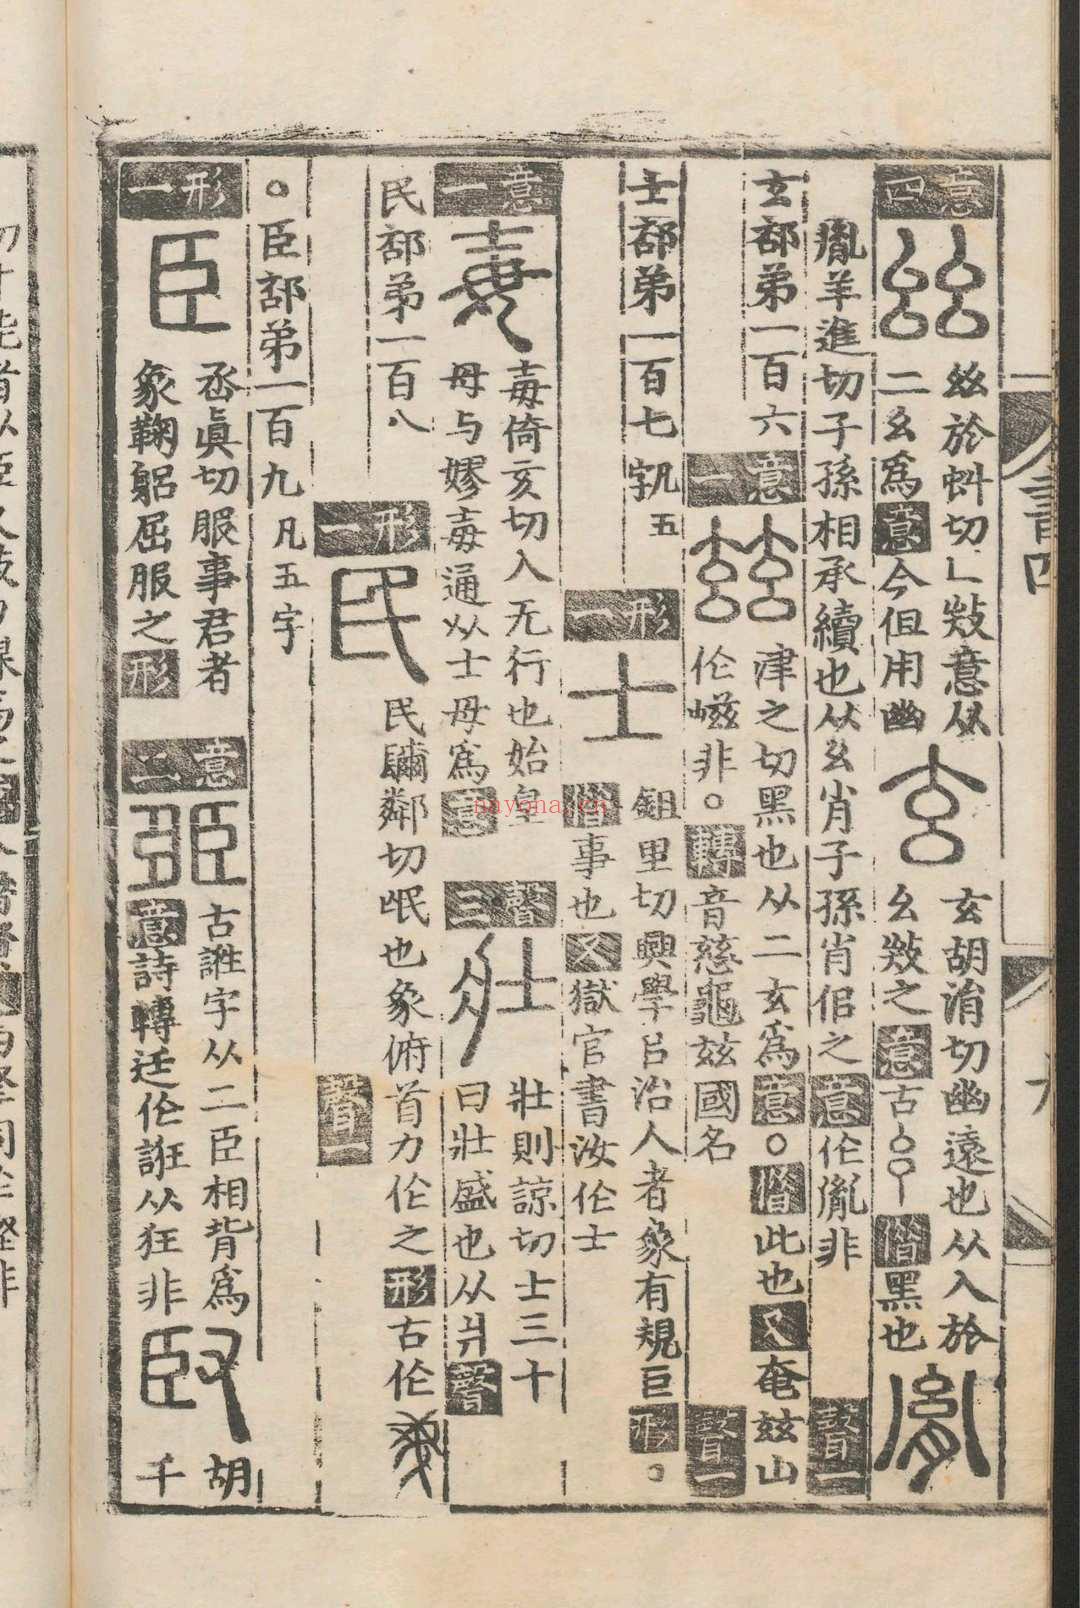 意四
𢆶於蚪切乚𢿱意从
二幺爲意今但用幽
玄胡涓切幽遠也从入於
幺𢿱之意古
借黑也
胤羊進切子孫相承續也从幺肖子孫肖佀之意伦胤非
聲一
玄部弟一百六
意一
津之切黑也从二玄爲意○借此也又奄玆山
伦嵫非○轉音慈龜玆國名
聲一
士部弟一百七
五
形一
士
鉏里切興學㠯治人者象有規巨形○
借事也又獄官書汝伦士
意一
毐
毐倚亥切人无行也始皇
母与嫪毐通从士母爲意
聲三
壯
壯則諒切士三十
曰壯盛也从爿聲
民部弟一百八
形一
民
民䮾鄰切氓也象俯首力伦之形古伦
聲一
○臣部弟一百九凡五字
形一
臣
丞眞切服事君者
象鞠躳屈服之形
意二
古誑字从二臣相背爲
意詩轉迋伦誑从狂非
胡
千
nayona.cn